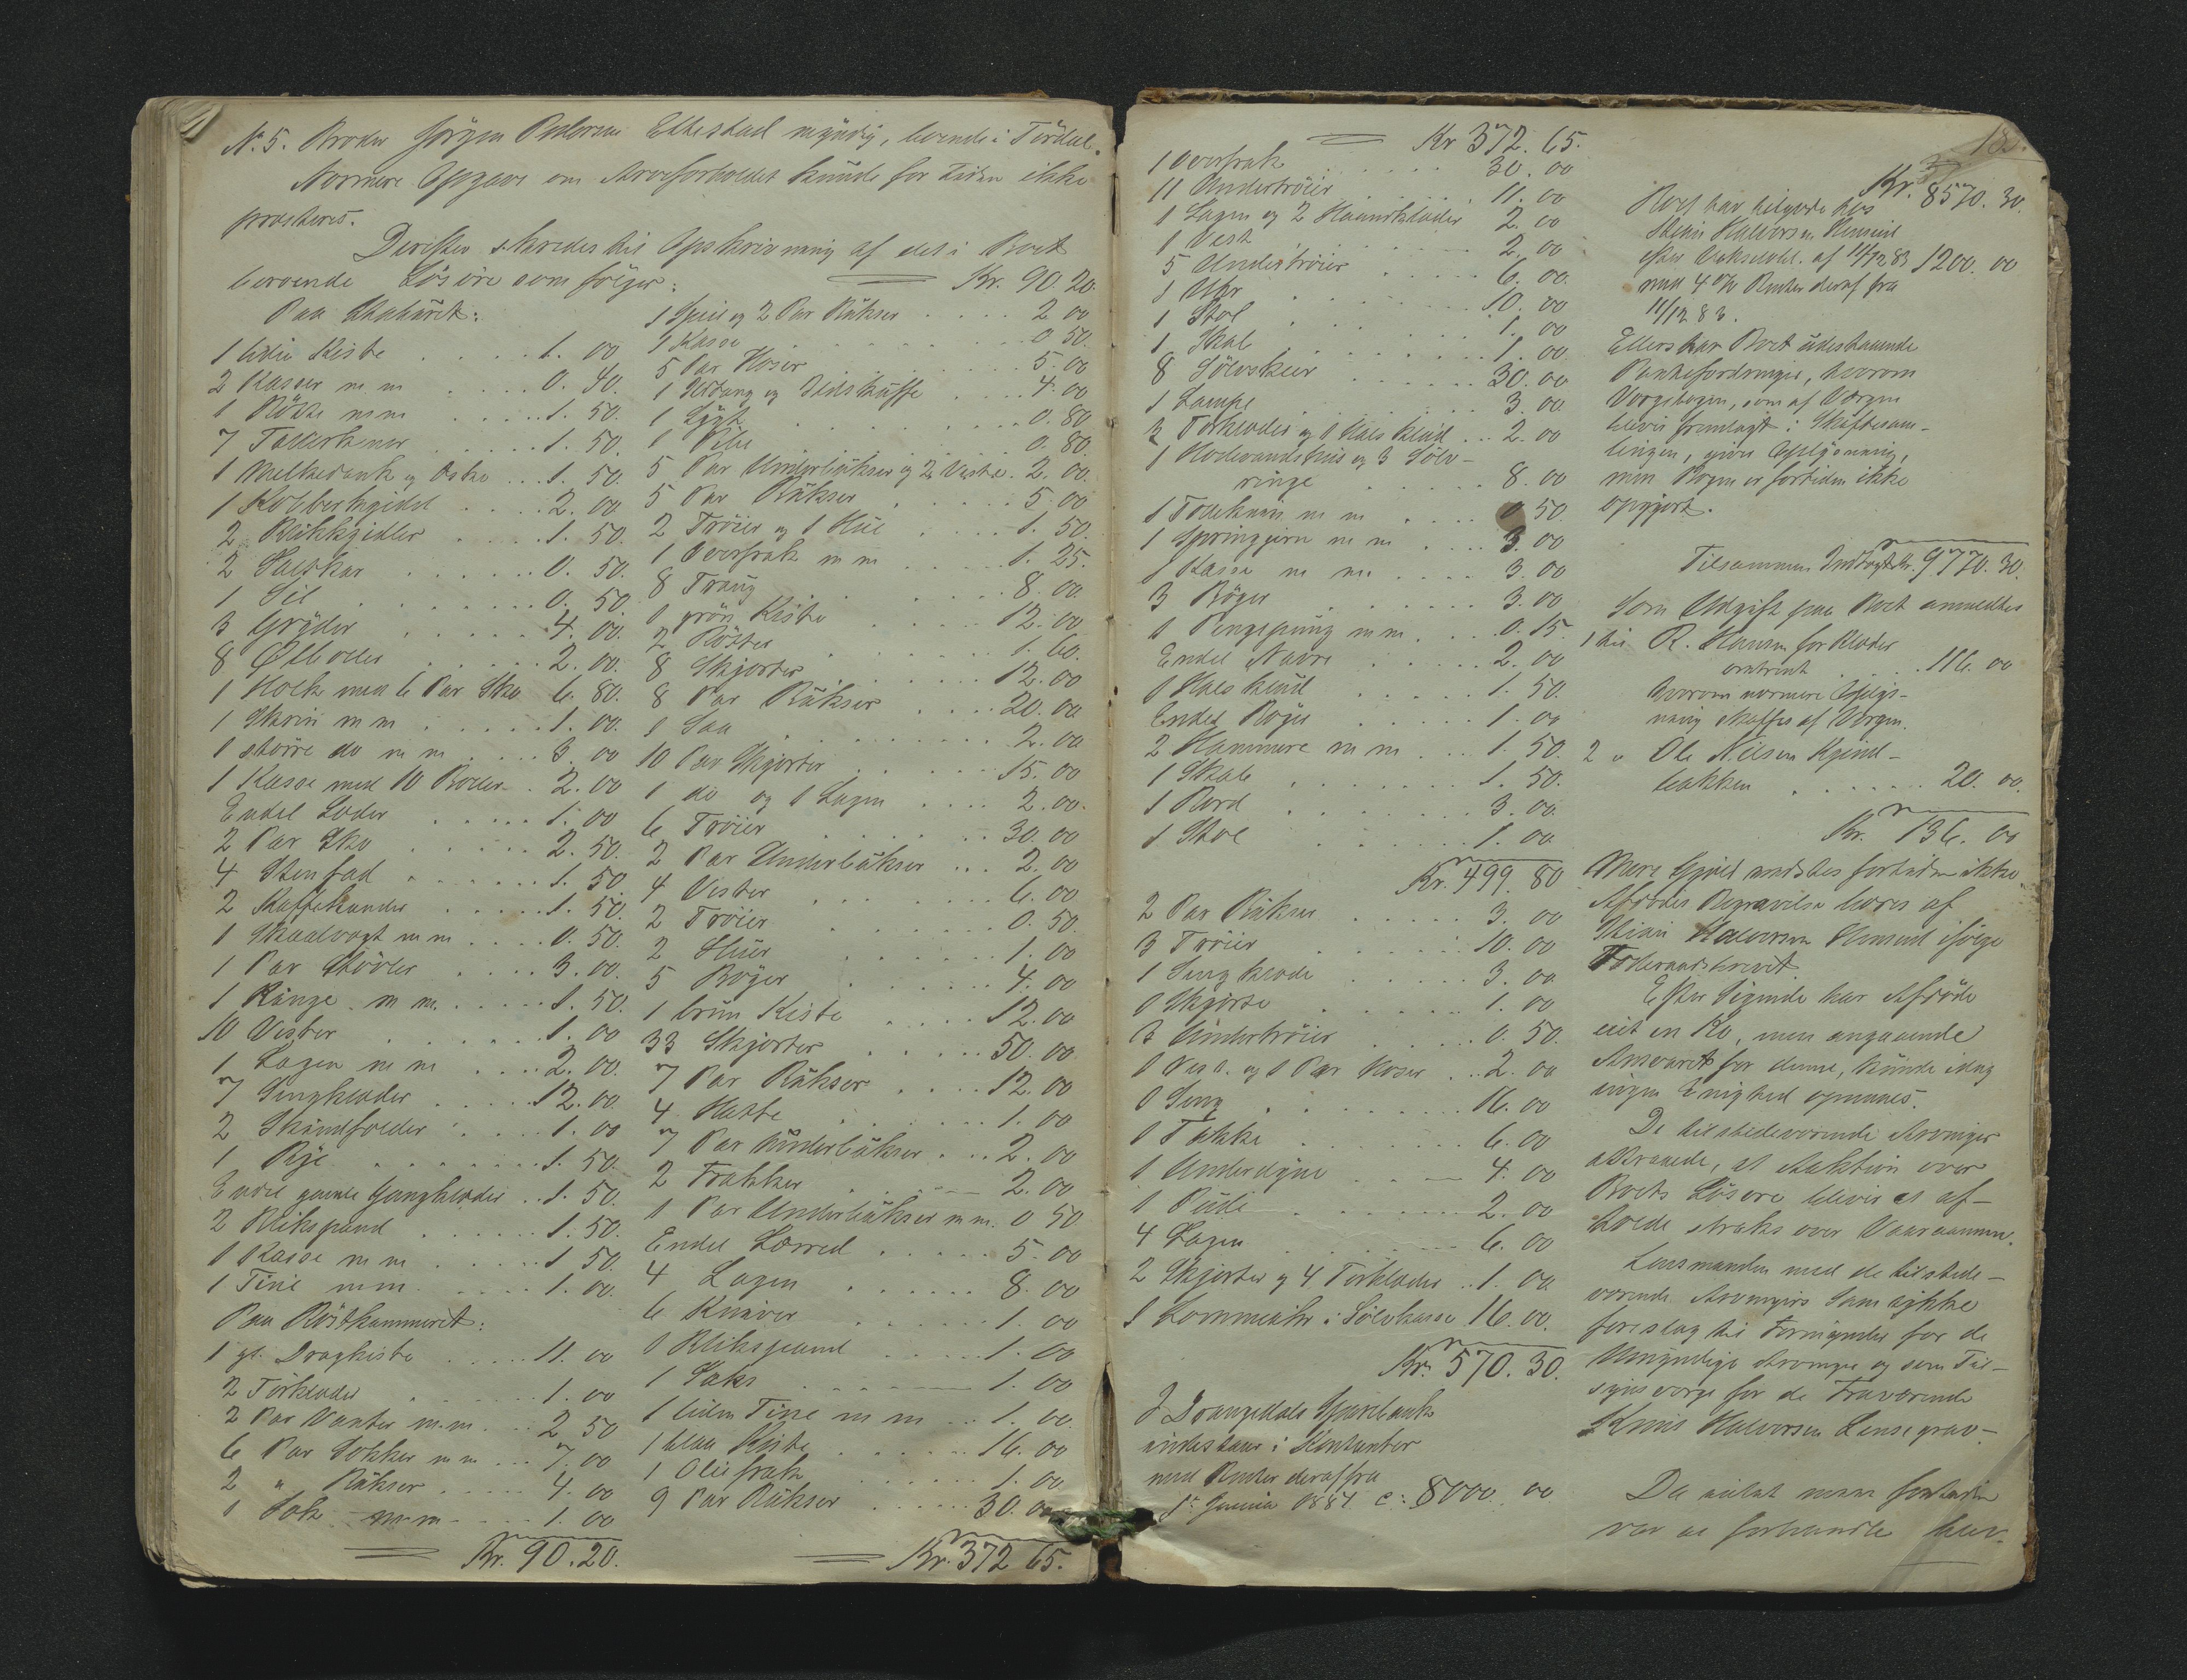 No. 5. Broder Jörgen Pedersen Ettestad myndig, boende i Tördal.
Nærmere Opgave om Arveforholdet kunde for Tiden ikke
præsteres.
Derefter skredes til Opskrivning af det i Boet
beroende Lösöre som fölger:
Paa Stabüret:
1 liden Kiste 1. 00
2 Kasser m m 0. 40.
1 Bötte m m 1. 50.
7 Tallerkener 1. 50.
1 Melkedank og Æske 1. 50.
1 Kobberkjedel 2. 00
2 Blikkjedler 1. 50.
2 Saltkar 0. 50.
1 Sil 0. 50.
3 Gryder 4. 00.
8 Ølboller 2. 00.
1 Holk med 6 Par Sko 6. 80.
1 Skrin m m 1. 00.
1 större do m m 3. 00
1 Kasse med 10 Boller 2. 00
Endel Læder 1. 00
2 Par Sko 2. 50.
4 Stenfad 1. 50
2 Kaffekander 1. 50.
1 Skaalvægt m m 0. 50.
1 Par Stövler 3. 00.
1 Ränge m m. 1. 50.
10 Vester 1. 00
1 Lagen m m 2. 00.
7 Sengklæder 12. 00
2 Skindfælder 1. 00
1 Rye 1. 50.
Endel gamle Gangklæder 1. 50.
2 Blikspand 1. 50.
1 Kasse m m 1 50.
1 Tine m m. 1. 00.
Paa Röstkammeret:
1 gl. Dragkiste 11. 00
2 Törklæder 1. 00
2 Par Vanter m. m. 2 50
6 Par Sokker m m 7. 00
2 " Bükser 4. 00
1 Sæk m m 1. 00
Kr. 90. 20.
Kr. 90. 20.
1 Speil og 2 Par Bükser 2 00
1 Kasse 0 50.
5 Par Hoser 5. 00
1 Uldtæng og Ildskuffe 4. 00
1 Lygt 0. 80
1 Pibe 0. 80.
5 Par Underbükser og 2 Veste 2. 00.
5 Par Bükser 5. 00
2 Tröier og 1 Hüe 1. 50.
1 Overfrak m m 1. 25.
8 Traug 8. 00.
1 grön Kiste 12. 00
2 Bötter 1. 60.
8 Skjorter 12. 00
8 Par Bükser 20. 00
1 Saa 2. 00
10 Par Skjorter 15. 00
1 do og 1 Lagen 2. 00.
6 Tröier 30. 00
2 Par Underbükser 2. 00
4 Vester 6. 00
2 Tröier 0. 50
2 Hüer 1. 00
5 Böger 4. 00
1 brün Kiste 12. 00
33 Skjorter 50. 00
7 Par Bükser 12. 00
4 Hatte 1. 00
7 Par Underbükser 2. 00
2 Frakker 2. 00
1 Par Underbükser m m. 0 50
Endel Lærred 5. 00
4 Lagen 8. 00
6 Knäver 1. 00
1 Blikspand 1. 00
1 Saks 1. 00
1 liden Tine m m 1. 00.
1 blaa Kiste 16. 00
1 Oliefrak 1. 00
9 Par Bükser 30. 00
Kr. 372 65.
Kr 372. 65.
1 Overfrak 30. 00
11 Undertröier 11. 00
1 Lagen og 2 Haandklæder 2. 00
1 Vest 2. 00
5 Undertröier 6. 00.
1 Uhr 10. 00
1 Stol 1. 00
1 Skab 1. 00.
8 Sölvskeer 30. 00
1 Lampe 3. 00
3 Törklæder og 1 Halsklud 2. 00
1 Hovedvandshus og 3 Sölv-
ringe 8. 00
1 Tollekniv m m 0 50.
1 Springjern m m 3. 00
1 Kasse m m 3. 00
3 Böger 3. 00
1 Pengepung m m. 0. 15.
Endel Navre 2. 00
1 Halsklud 1. 50.
Endel Böger 1. 00
2 Hammere m m 1. 50.
1 Skab 1. 50.
1 Bord 3. 00.
1 Stol 1. 00.
Kr. 499. 80
2 Par Bükser 3. 00
3 Tröier 10. 00
1 Sengklæde 3. 00
1 Skjorte 1. 00
3 Undertröier 0. 50.
1 Vest. og 1 Par Hoser 2. 00
1 Seng 16. 00
1 Täkke 6. 00
1 Underdyne 4. 00
1 Pude 2. 00
4 Lagen 6. 00
2 Skjorter og 4 Törklæder 1. 00
1 Lommeuhr i Sölvkasse 16. 00.
Kr. 570. 30.
I Drangedals Sparebank
indestaar i Kontanter
med Renter deraf fra
1ste Januar 1884 c: 8000. 00
183.
Kr. 8570. 30.
Boet har tilgode hos
Stian Halvorsen
efter Vekselobl. af 11/12 83 1200. 00
med 4 % Renter deraf fra
11/12 83.
Ellers har Boet udestaaende
Pantefordringer, hvorom
Værgebogen, som af Værgen
bliver fremlagt i Skiftesam-
lingen, giver Oplysning,
men Bogen er fortiden ikke
opgjort.
Tilsammen Indtægt Kr. 9770. 30.
Som Udgift paa Boet anmeldtes
1 til R. Hansen for Klæder
omtrent 116. 00
hvorom nærmere Oplys-
ning skaffes af Værgen.
2 " Ole Nilsen Kjend-
bakken 20. 00.
Kr. 136. 00
Mere Gjæld meldtes fortiden ikke.
Afdödes Begravelse bæres af
Stian Halvorsen ifölge
Föderaadsbrevet.
Efter Sigende har Afdöde
eiet en Ko, men angaaende
Ansvaret for denne, kunde idag
ingen Enighed opnaaes.
De tilstedeværende Arvinger
attraaede, at Auktion over
Boets Lösöre bliver at af-
holde straks over Vaaraannen.
Lensmanden med de tilstede-
værende Arvingers Samtykke
foreslog til Formynder for de
Umyndige Arvinger og som Til-
synsværge for de Fraværende
Halvorsen Lensegrav.
Da intet mere fortiden
var at forhandle blev